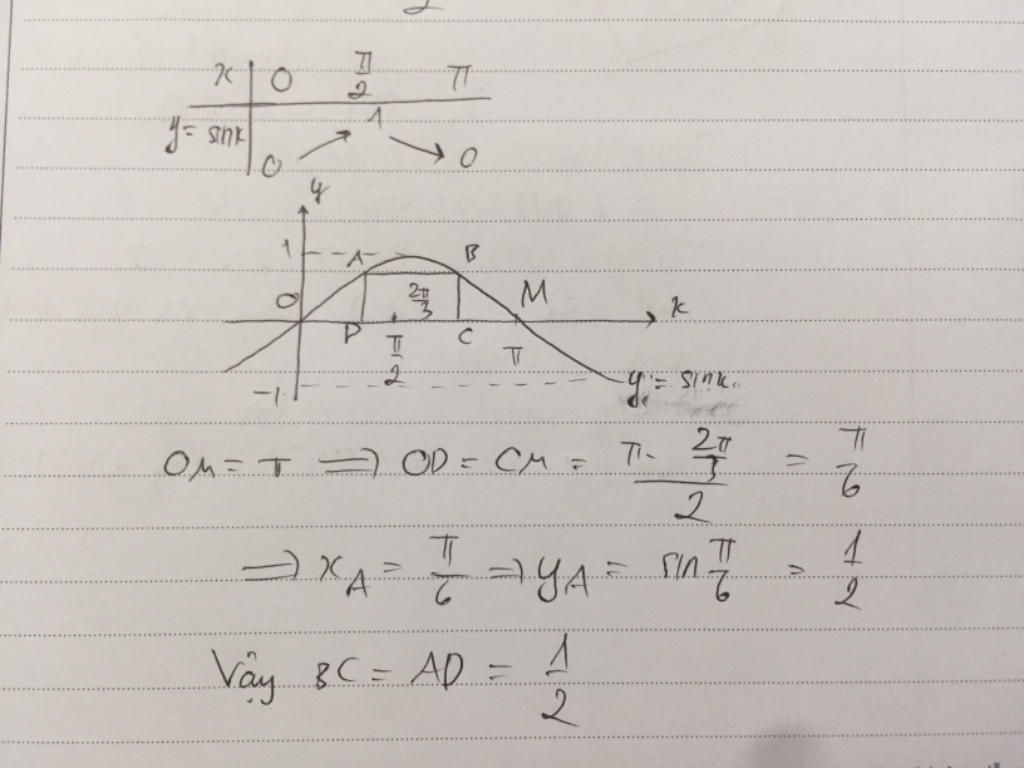 x 0 π/2 π
y = sinx 0 1 0
y
1 A B
O 2π/3 M x
D π/2 C π
-1 y = sinx
OM = π ⟹ OD = CM = (π - 2π/3)/2 = π/6
⟹ x_A = π/6 ⟹ y_A = sin π/6 = 1/2
Vậy BC = AD = 1/2